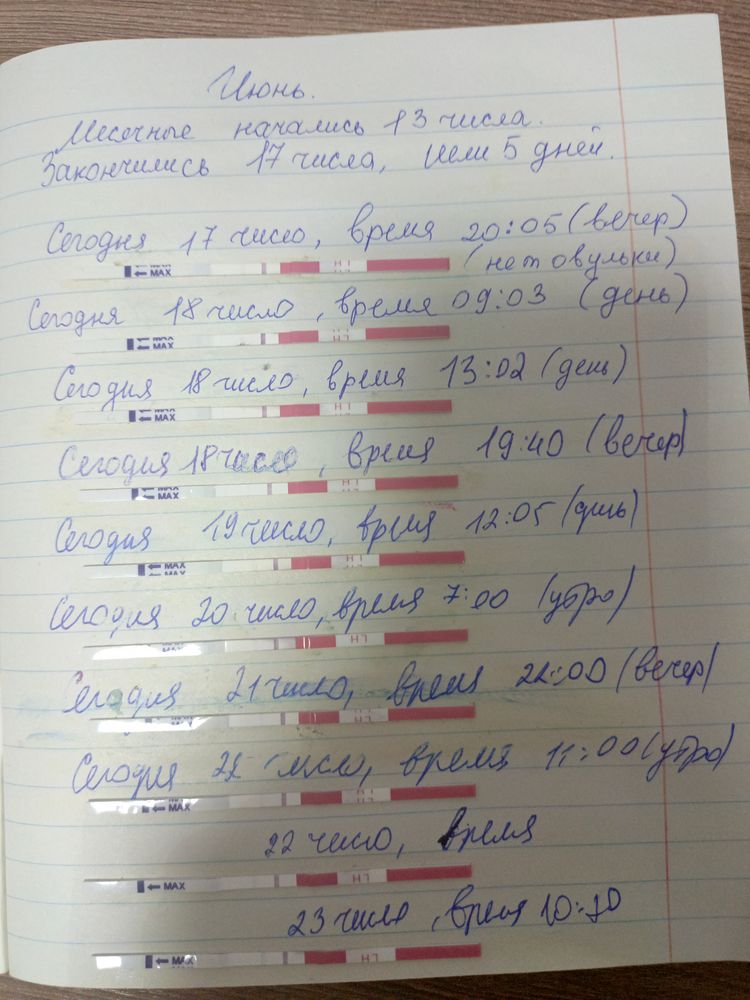 Июнь.
Месечные начались 13 числа.
Закончились 17 числа, шли 5 дней.
Сегодня 17 число, время 20:05 (вечер)
(нет овульки)
← MAX LH
Сегодня 18 число, время 09:03 (день)
← MAX LH
Сегодня 18 число, время 13:02 (день)
← MAX LH
Сегодня 18 число, время 19:40 (вечер)
← MAX LH
Сегодня 19 число, время 12:05 (день)
← MAX LH
Сегодня 20 число, время 7:00 (утро)
LH
Сегодня 21 число, время 22:00 (вечер)
LH
Сегодня 22 число, время 11:00 (утро)
← MAX LH
22 число, время
← MAX LH
23 число, время
← MAX LH